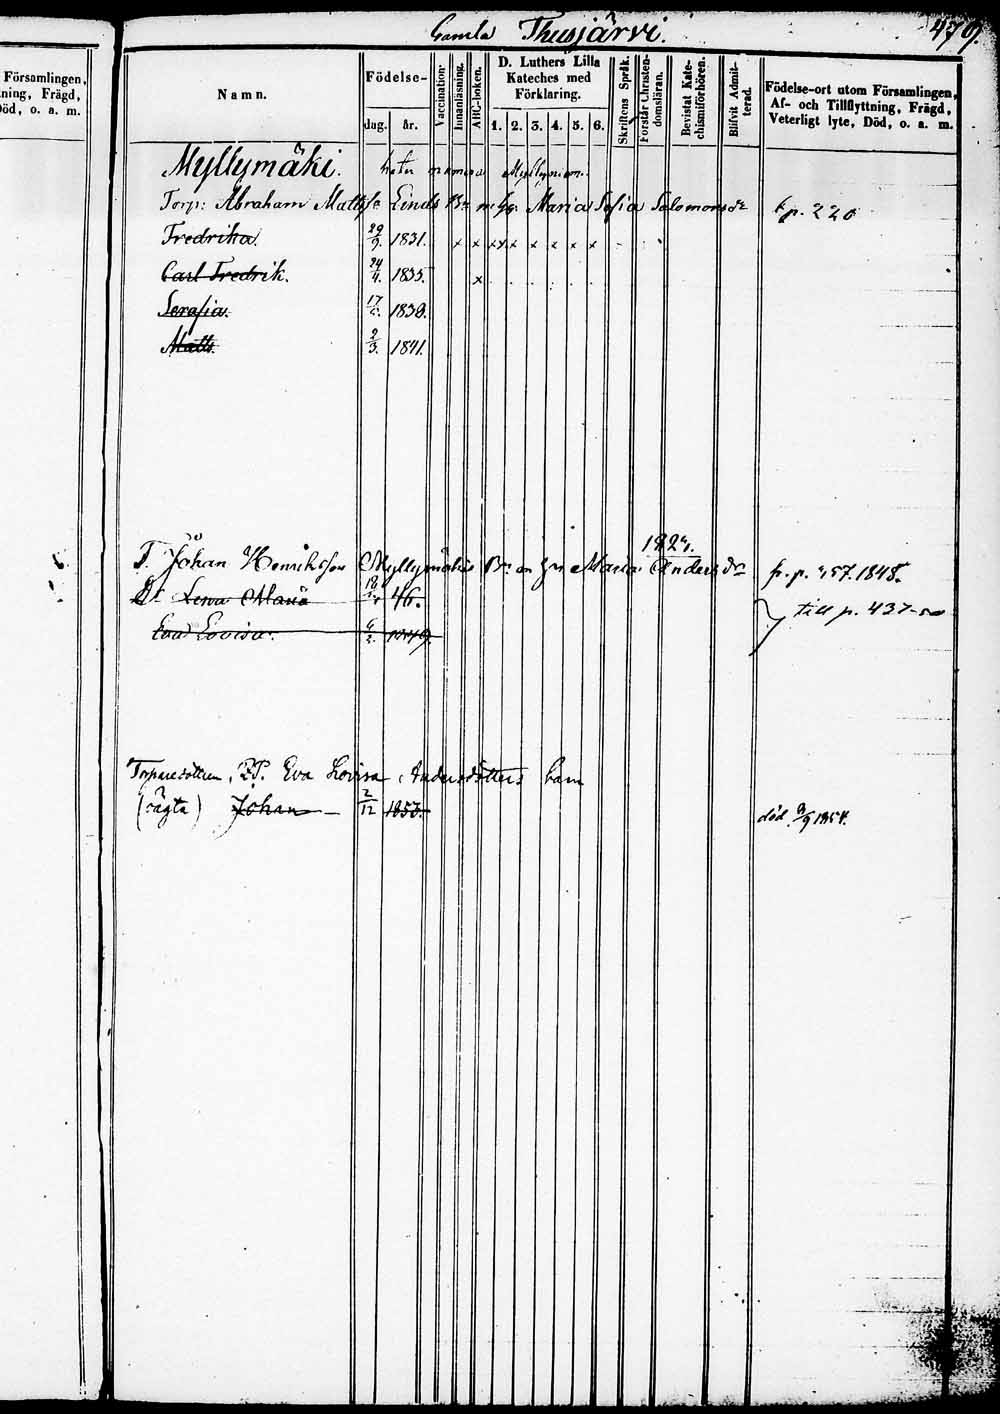 Församlingen,
ning, Frägd,
Död, o. a. m.
Gamla Thusjärvi.
479.
Namn.
Födelse-
dag. år.
Vaccination.
Innanläsning.
ABC-boken.
D. Luthers Lilla
Kateches med
Förklaring.
1. 2. 3. 4. 5. 6.
Skriftens Språk.
Förstår Christen-
domsläran.
Bevistat Kate-
chismiförhören.
Blifvit Admit-
terad.
Födelse-ort utom Församlingen,
Af- och Tillflyttning, Frägd,
Veterligt lyte, Död, o. a. m.
Myllymäki. heter numera
Torp: Abraham Matts Linds Bn m Hu Maria Sofia Salomonsdr p. 220
Fredrika. 29/9. 1831. x x x x x x x x x
Carl Fredrik. 24/4. 1835. x
Serafia. 1839.
Matts. 2/3. 1841.
T. Johan Henriksson Myllymäkis Maria Andersdr
Dr Lena Maria 46. till p. 437
Eva Lovisa. 1849.
Eva Lovisa Andersdotters barn
(oägta) Johan — 2/12 1853. död. 1854.